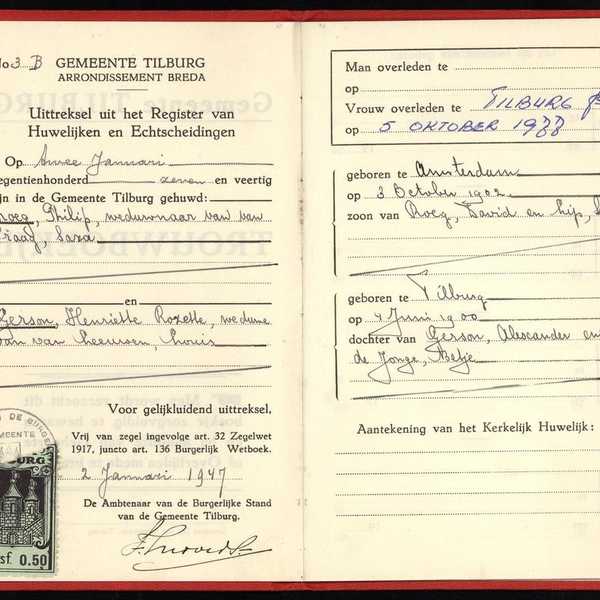 No 3 B
GEMEENTE TILBURG
ARRONDISSEMENT BREDA
Uittreksel uit het Register van
Huwelijken en Echtscheidingen
Op twee Januari
egentienhonderd zeven en veertig
ijn in de Gemeente Tilburg gehuwd:
Philip, weduwnaar van van
raag, Sara
en
Gerson, Henriette Rozette, weduwe
van van Leeuwen, Louis
Voor gelijkluidend uittreksel,
Vrij van zegel ingevolge art. 32 Zegelwet
1917, juncto art. 136 Burgerlijk Wetboek.
2 Januari 1947
De Ambtenaar van de Burgerlijke Stand
van de Gemeente Tilburg,
DE BURGE
EMEENTE
BURG
sf. 0.50
Man overleden te
op
Vrouw overleden te TILBURG
op 5 OKTOBER 1988
geboren te Amsterdam
op 3 October 1902
zoon van Roeg, David en Lip,
geboren te Tilburg
op 4 Juni 1900
dochter van Gerson, Alexander en
de Jonge, Betje
Aantekening van het Kerkelijk Huwelijk: